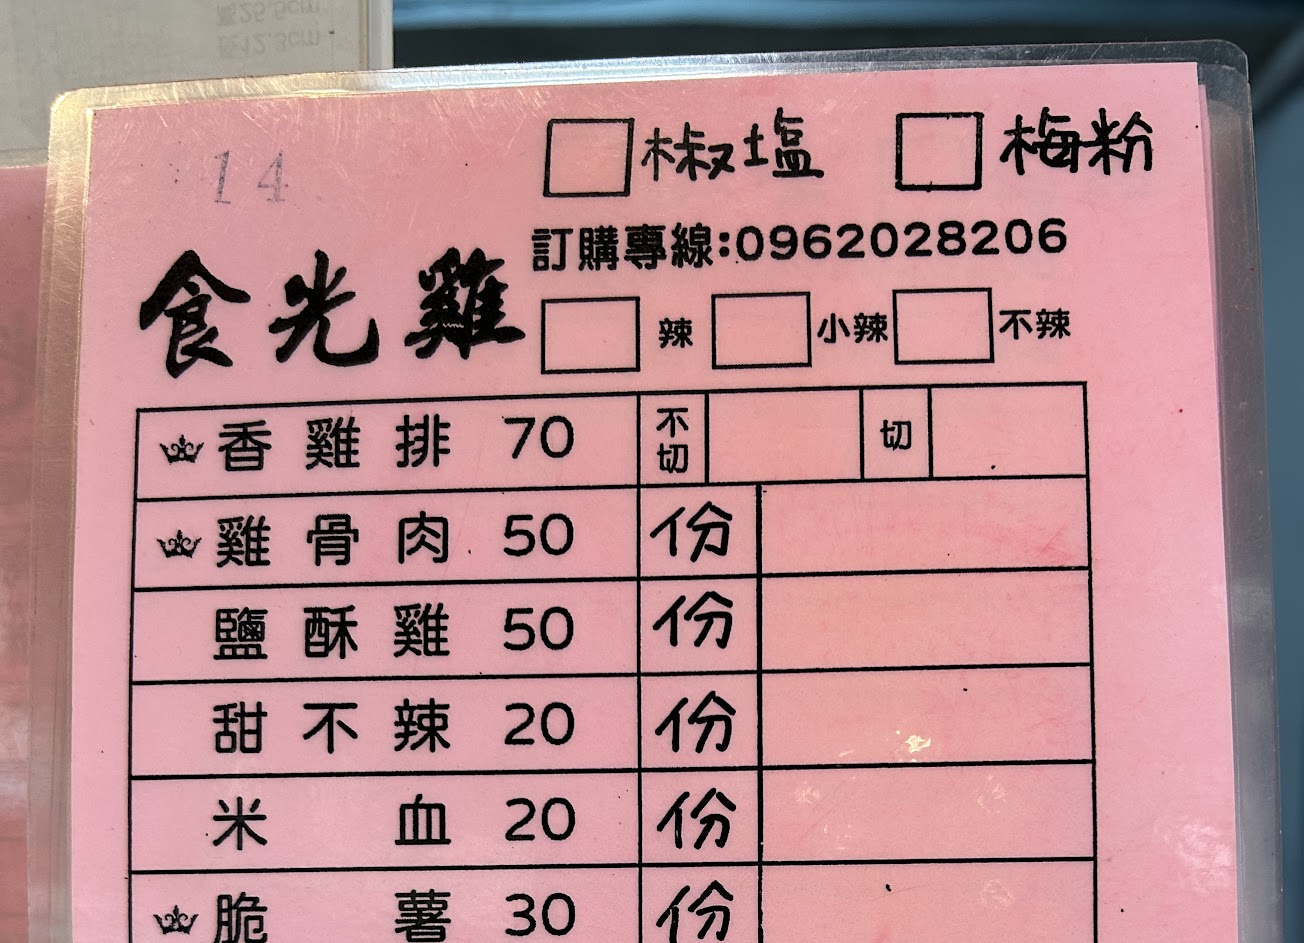 14
□椒塩 □梅粉
訂購專線:0962028206
食光雞
□辣 □小辣 □不辣
香雞排 70 不切 切
雞骨肉 50 份
鹽酥雞 50 份
甜不辣 20 份
米血 20 份
脆薯 30 份